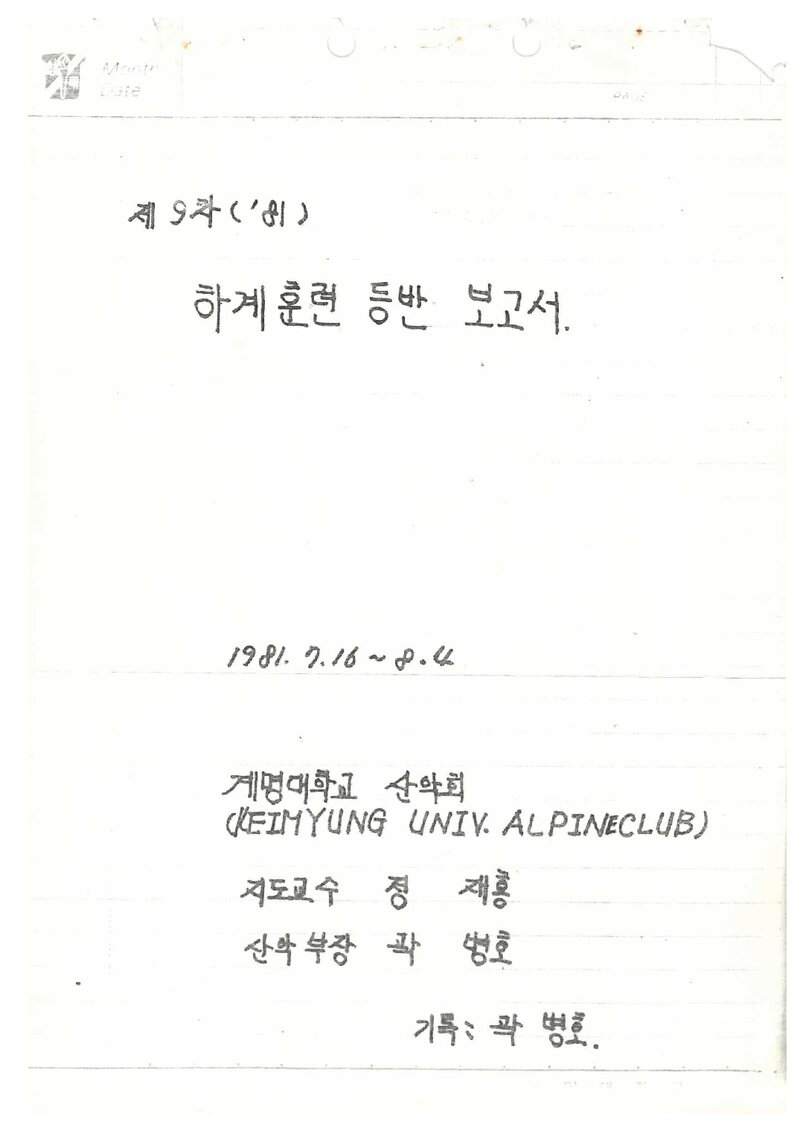 Month
Date
PAGE
제 9차 ('81)
하계훈련 등반 보고서.
1981. 7. 16 ~ 8. 4
계명대학교 산악회
(KEIMYUNG UNIV. ALPINECLUB)
지도교수 정 재홍
산악부장 곽 병호
기록: 곽 병호.